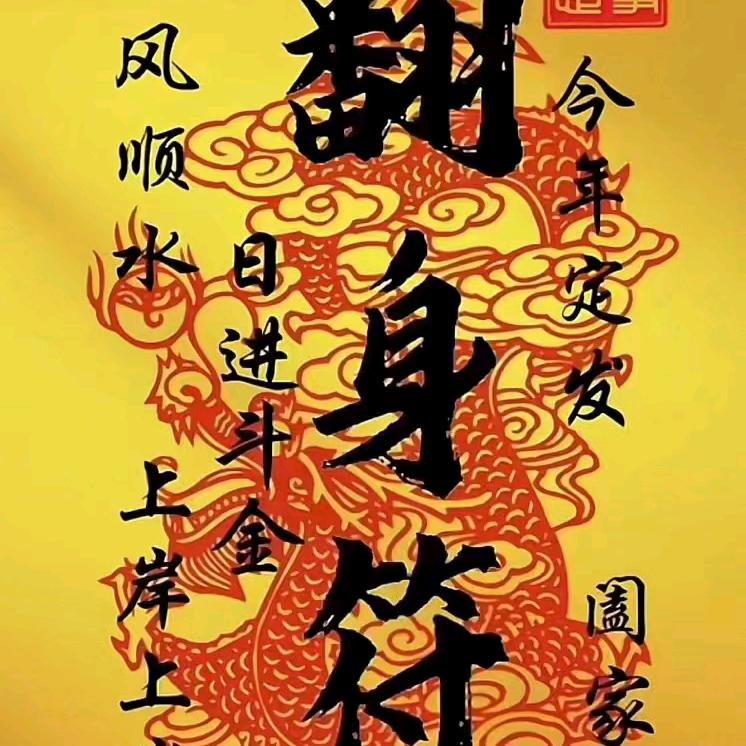 翻身符
今年定发
阖家
日进斗金
风顺水
上岸上